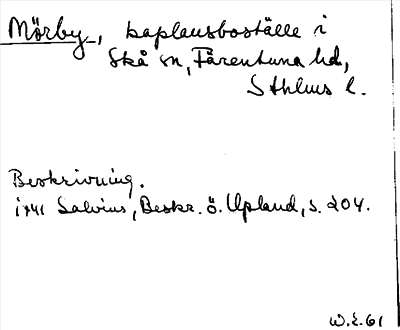 Mörby, kaplansboställe i
Skå sn, Färentuna hd,
Sthlms l.
Beskrivning.
1741 Salvius, Beskr. ö. Upland, s. 204.
W.E. 61